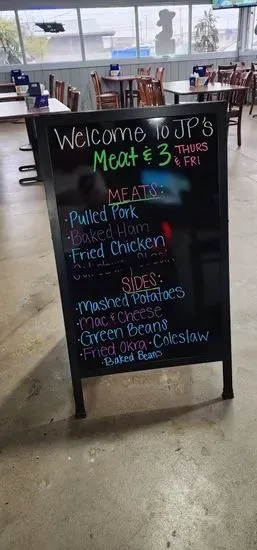 Welcome to JP's
Meat & 3 THURS & FRI
MEATS:
· Pulled Pork
· Baked Ham
· Fried Chicken
SIDES:
· Mashed Potatoes
· Mac & Cheese
· Green Beans
· Fried Okra · Coleslaw
· Baked Beans